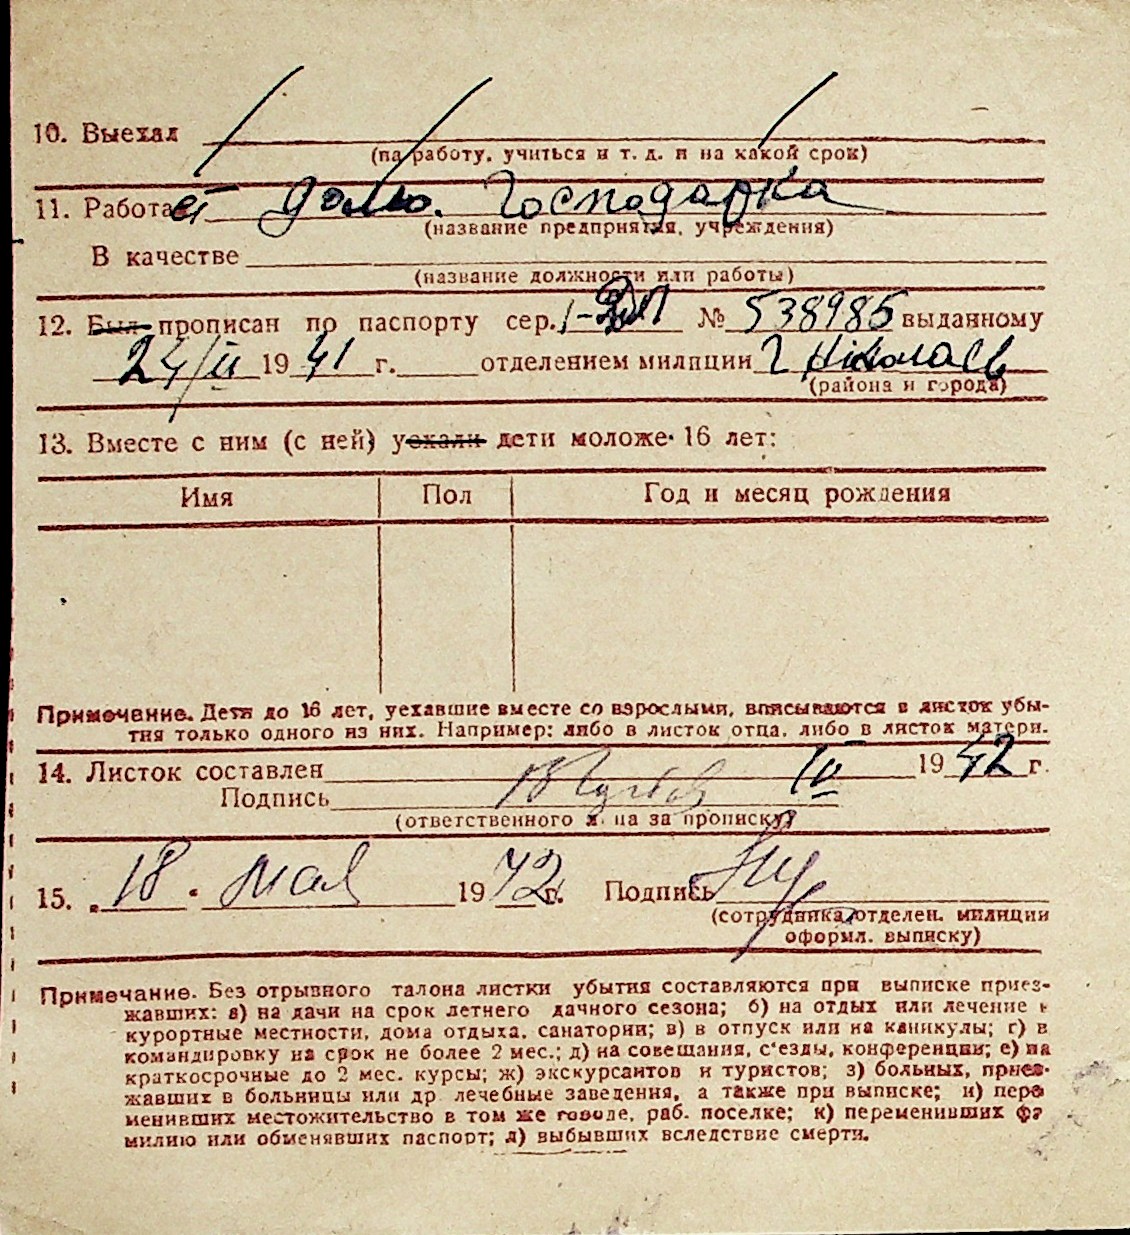 10. Выехал
(на работу, учиться и т. д. и на какой срок)
11. Работает домо. Господарка
(название предприятия, учреждения)
В качестве
(название должности или работы)
12. Был прописан по паспорту сер. № 538985 выданному
24/II 1941 г. отделением милиции г Николаев
(района и города)
13. Вместе с ним (с ней) уехали дети моложе 16 лет:
Имя Пол Год и месяц рождения
Примечание. Дети до 16 лет, уехавшие вместе со взрослыми, вписываются в листок убы-
тия только одного из них. Например: либо в листок отца, либо в листок матери.
14. Листок составлен 1942 г.
Подпись
(ответственного лица за прописку)
15. 18 мая 1942 г. Подпись
(сотрудника отделен. милиции
оформл. выписку)
Примечание. Без отрывного талона листки убытия составляются при выписке приез-
жавших: а) на дачи на срок летнего дачного сезона; б) на отдых или лечение в
курортные местности, дома отдыха, санатории; в) в отпуск или на каникулы; г) в
командировку на срок не более 2 мес.; д) на совещания, с'езды, конференции; е) на
краткосрочные до 2 мес. курсы; ж) экскурсантов и туристов; з) больных, приез-
жавших в больницы или др лечебные заведения, а также при выписке; и) пере
менивших местожительство в том же городе, раб. поселке; к) переменивших фа
милию или обменявших паспорт; л) выбывших вследствие смерти.